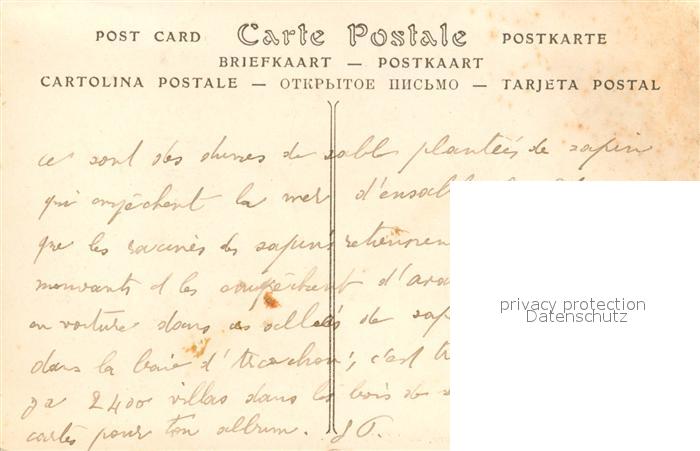 POST CARD Carte Postale POSTKARTE
BRIEFKAART — POSTKAART
CARTOLINA POSTALE — ОТКРЫТОЕ ПИСЬМО — TARJETA POSTAL
ce sont des dunes de sable plantées de sapin
qui empêchent la mer d'ensabl
que les racines des sapins retiennen
mouvants et les empêchent d'ava
en voiture dans ces allées de sap
dans la baie d'Arcachon, c'est tr
ya 2400 villas dans les bois de s
cartes pour ton album.
privacy protection
Datenschutz